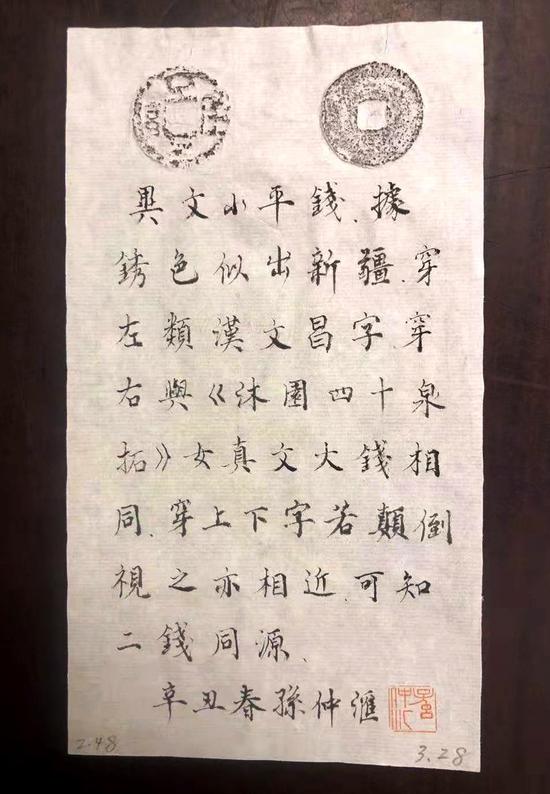 異文小平錢、據
銹色似出新疆、穿
左類漢文昌字穿
右與《沐園四十泉
拓》女真文大錢相
同、穿上下字若顛倒
視之亦相近、可知
二錢同源、
辛丑春孫仲滙
2.48
3.28